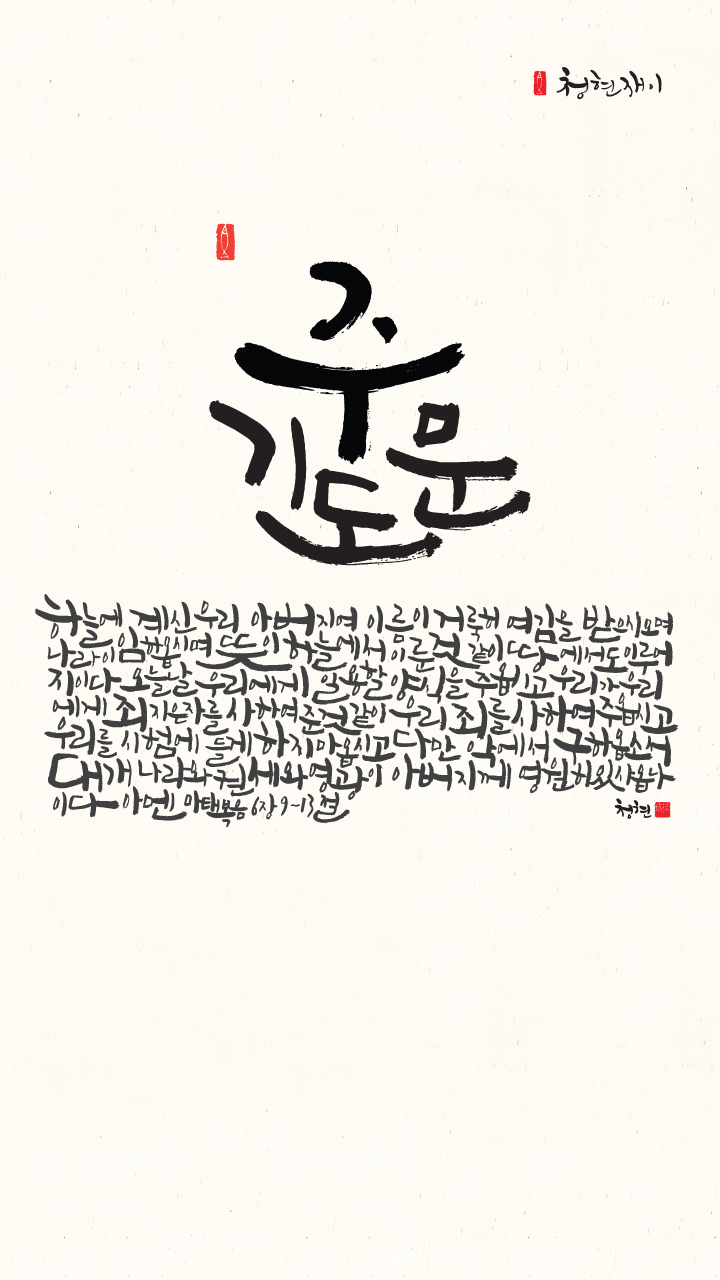 청현재이
주
기도문
하늘에 계신 우리 아버지여 이름이 거룩히 여김을 받으시오며
나라이 임하옵시며 뜻이 하늘에서 이룬것 같이 땅에서도 이루어
지이다 오늘날 우리에게 일용할 양식을 주옵시고 우리가 우리
에게 죄 지은 자를 사하여 준것 같이 우리 죄를 사하여 주옵시고
우리를 시험에 들게 하지 마옵시고 다만 악에서 구하옵소서
대개 나라와 권세와 영광이 아버지께 영원히 있사옵나
이다 아멘 마태복음 6장 9~13절
청현